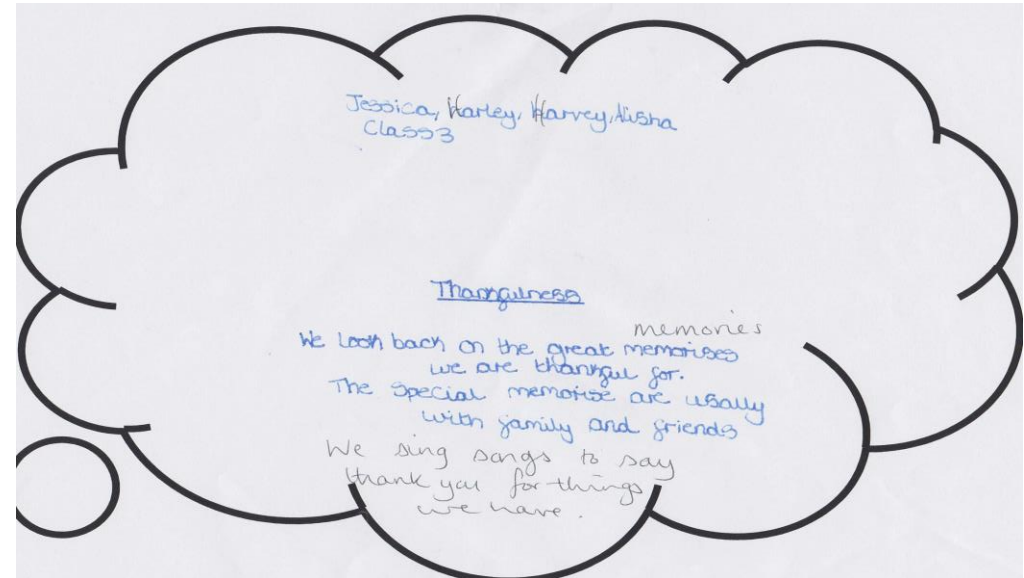 Jessica, Harley, Harvey, Alisha
Class 3
Thankfulness
memories
We look back on the great memorises
we are thankful for.
The special memorise are usally
with family and friends
We sing songs to say
thank you for things
we have.